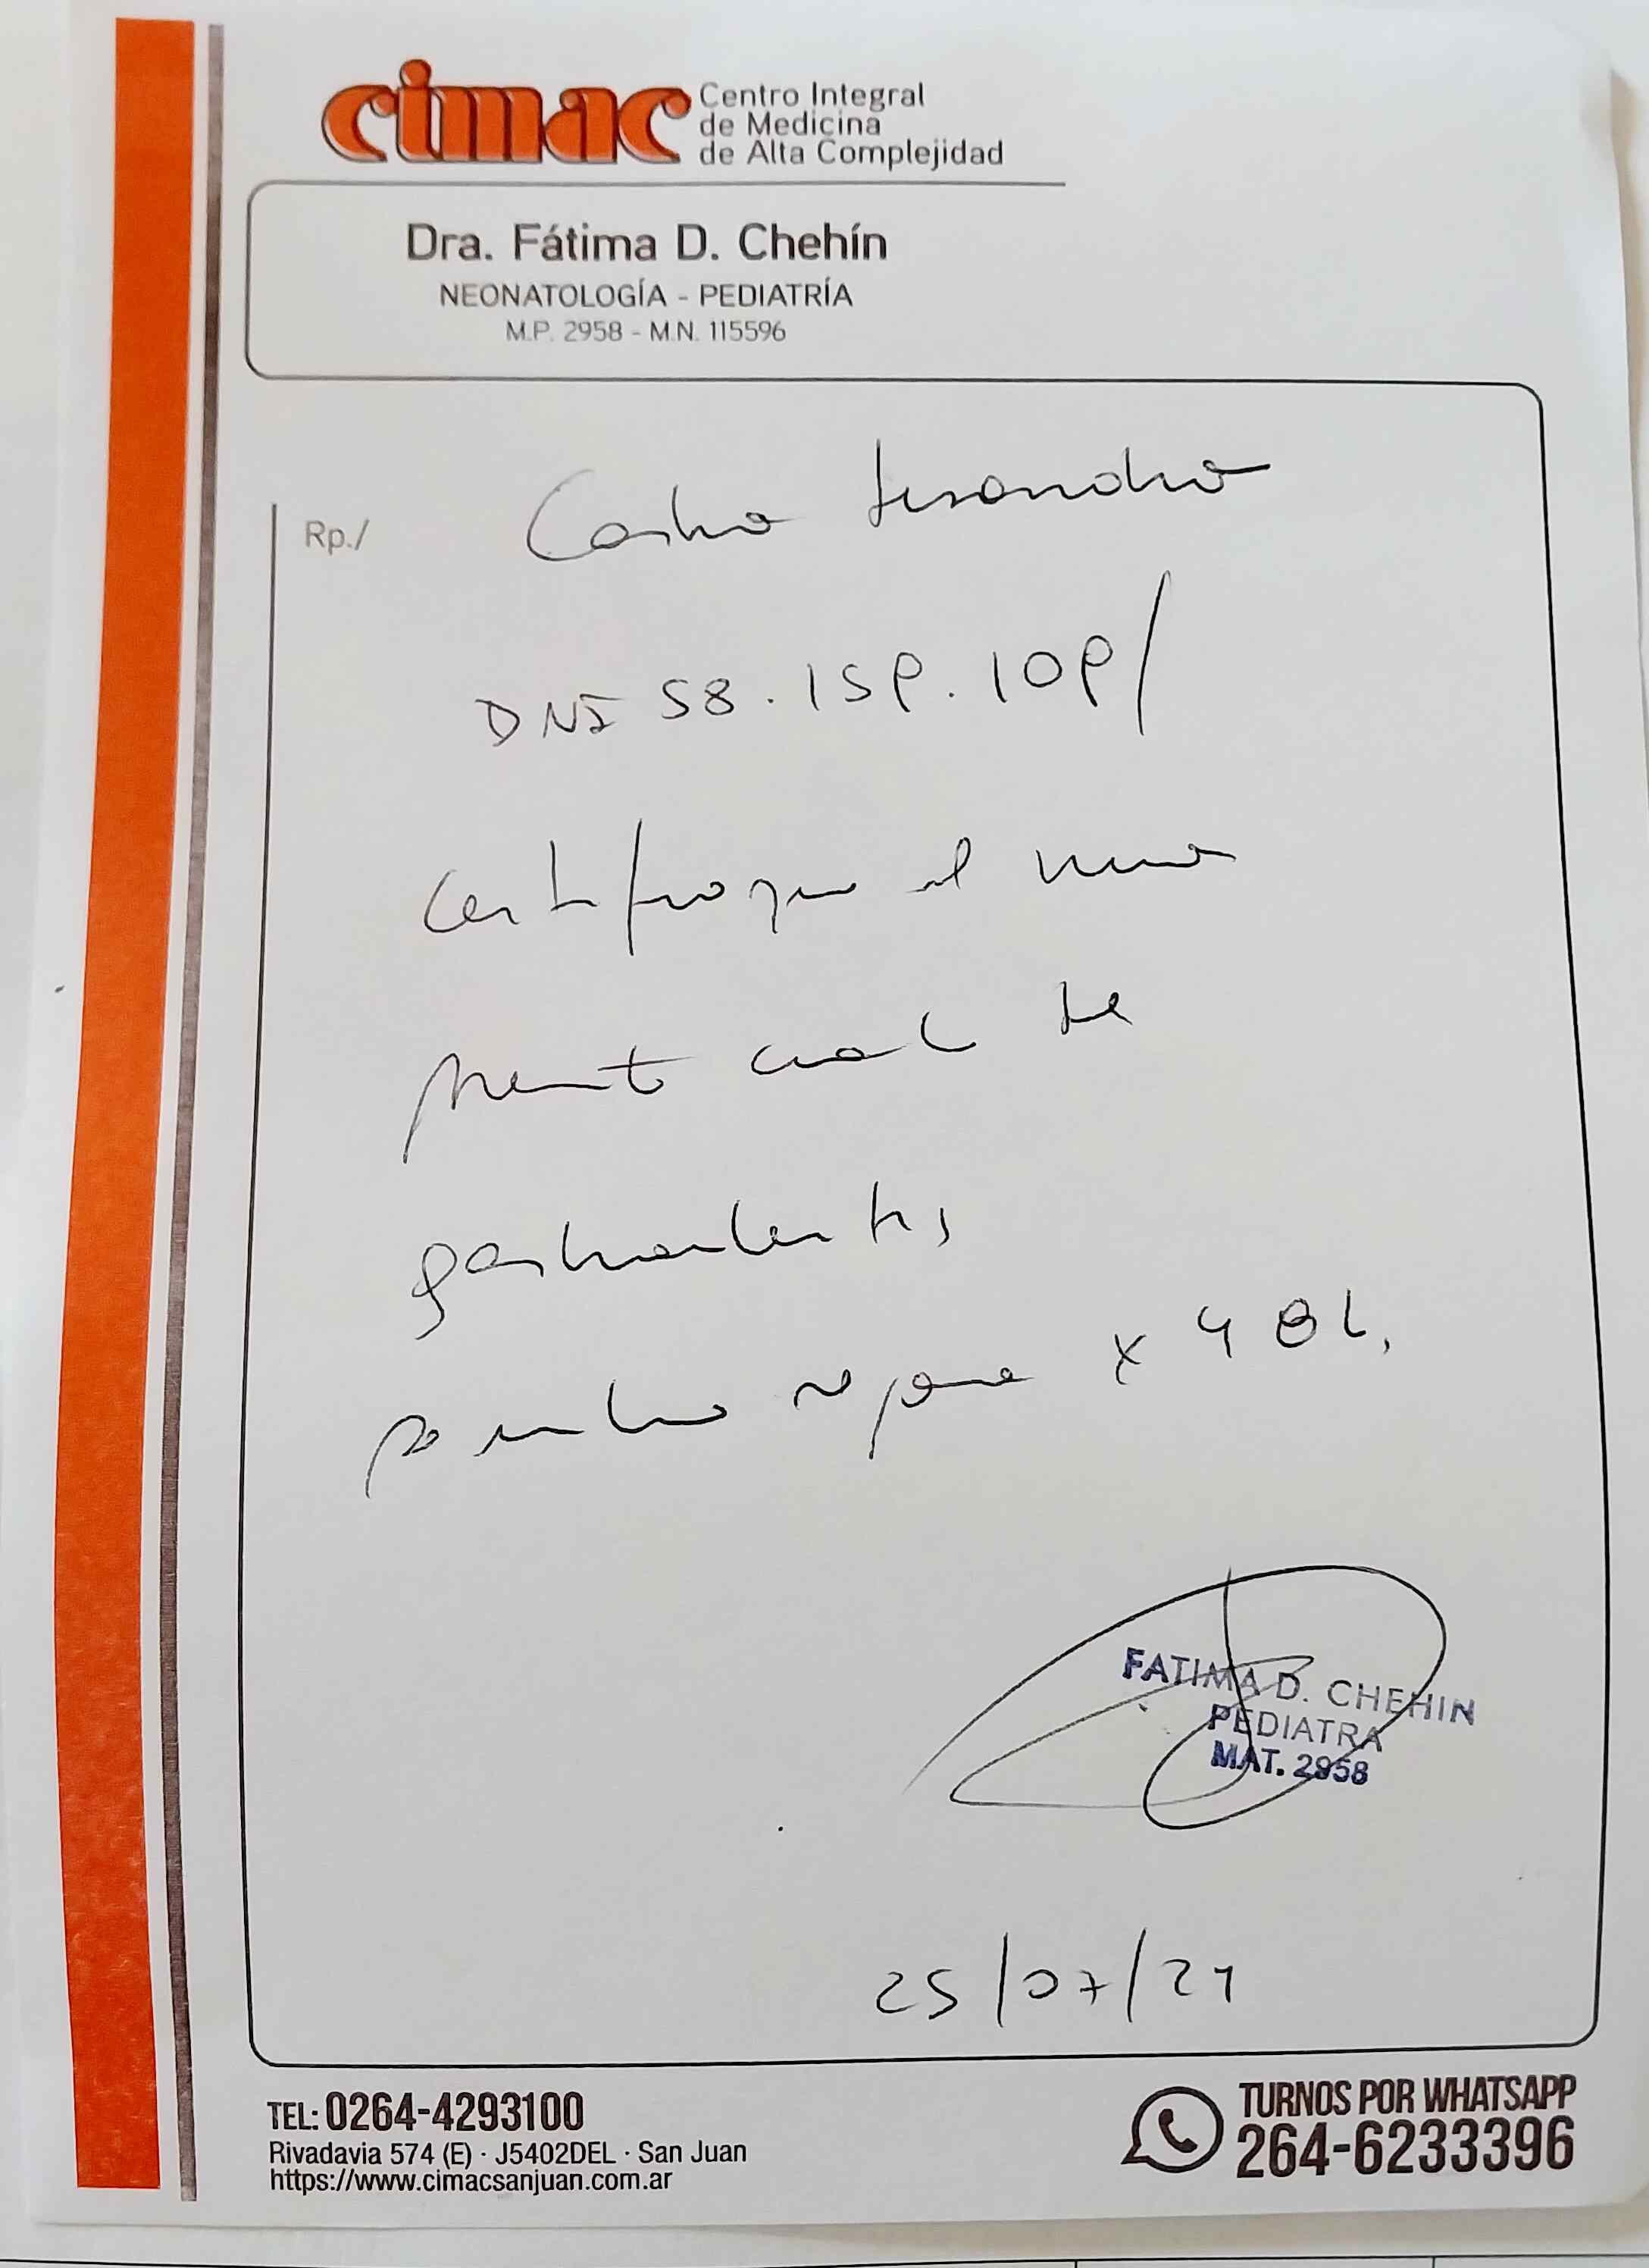 cimac Centro Integral
de Medicina
de Alta Complejidad
Dra. Fátima D. Chehín
NEONATOLOGÍA - PEDIATRÍA
M.P. 2958 - M.N. 115596
Rp./
Castro
DNI 58.159.109/
Certifico que el
presenta cuadro de
gastroenteritis,
reposo x 48h.
FATIMA D. CHEHIN
PEDIATRA
MAT. 2958
25/07/24
TEL: 0264-4293100
Rivadavia 574 (E) · J5402DEL · San Juan
https://www.cimacsanjuan.com.ar
TURNOS POR WHATSAPP
264-6233396